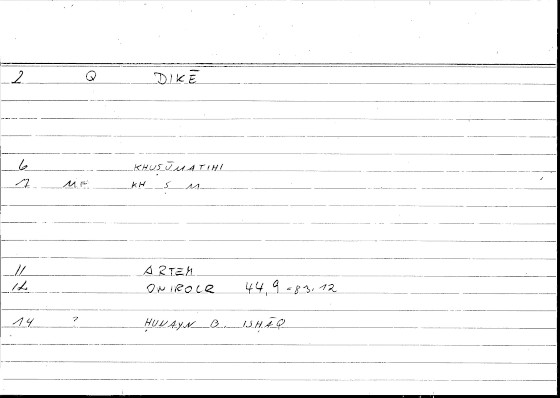 2 Q DIKĒ
6 KHUṢŪMATIHI
7 MF KH Ṣ M
11 ARTEM
12 ONIROCR 44,9 = 83.12
14 ? ḤUNAYN B. ISḤĀQ